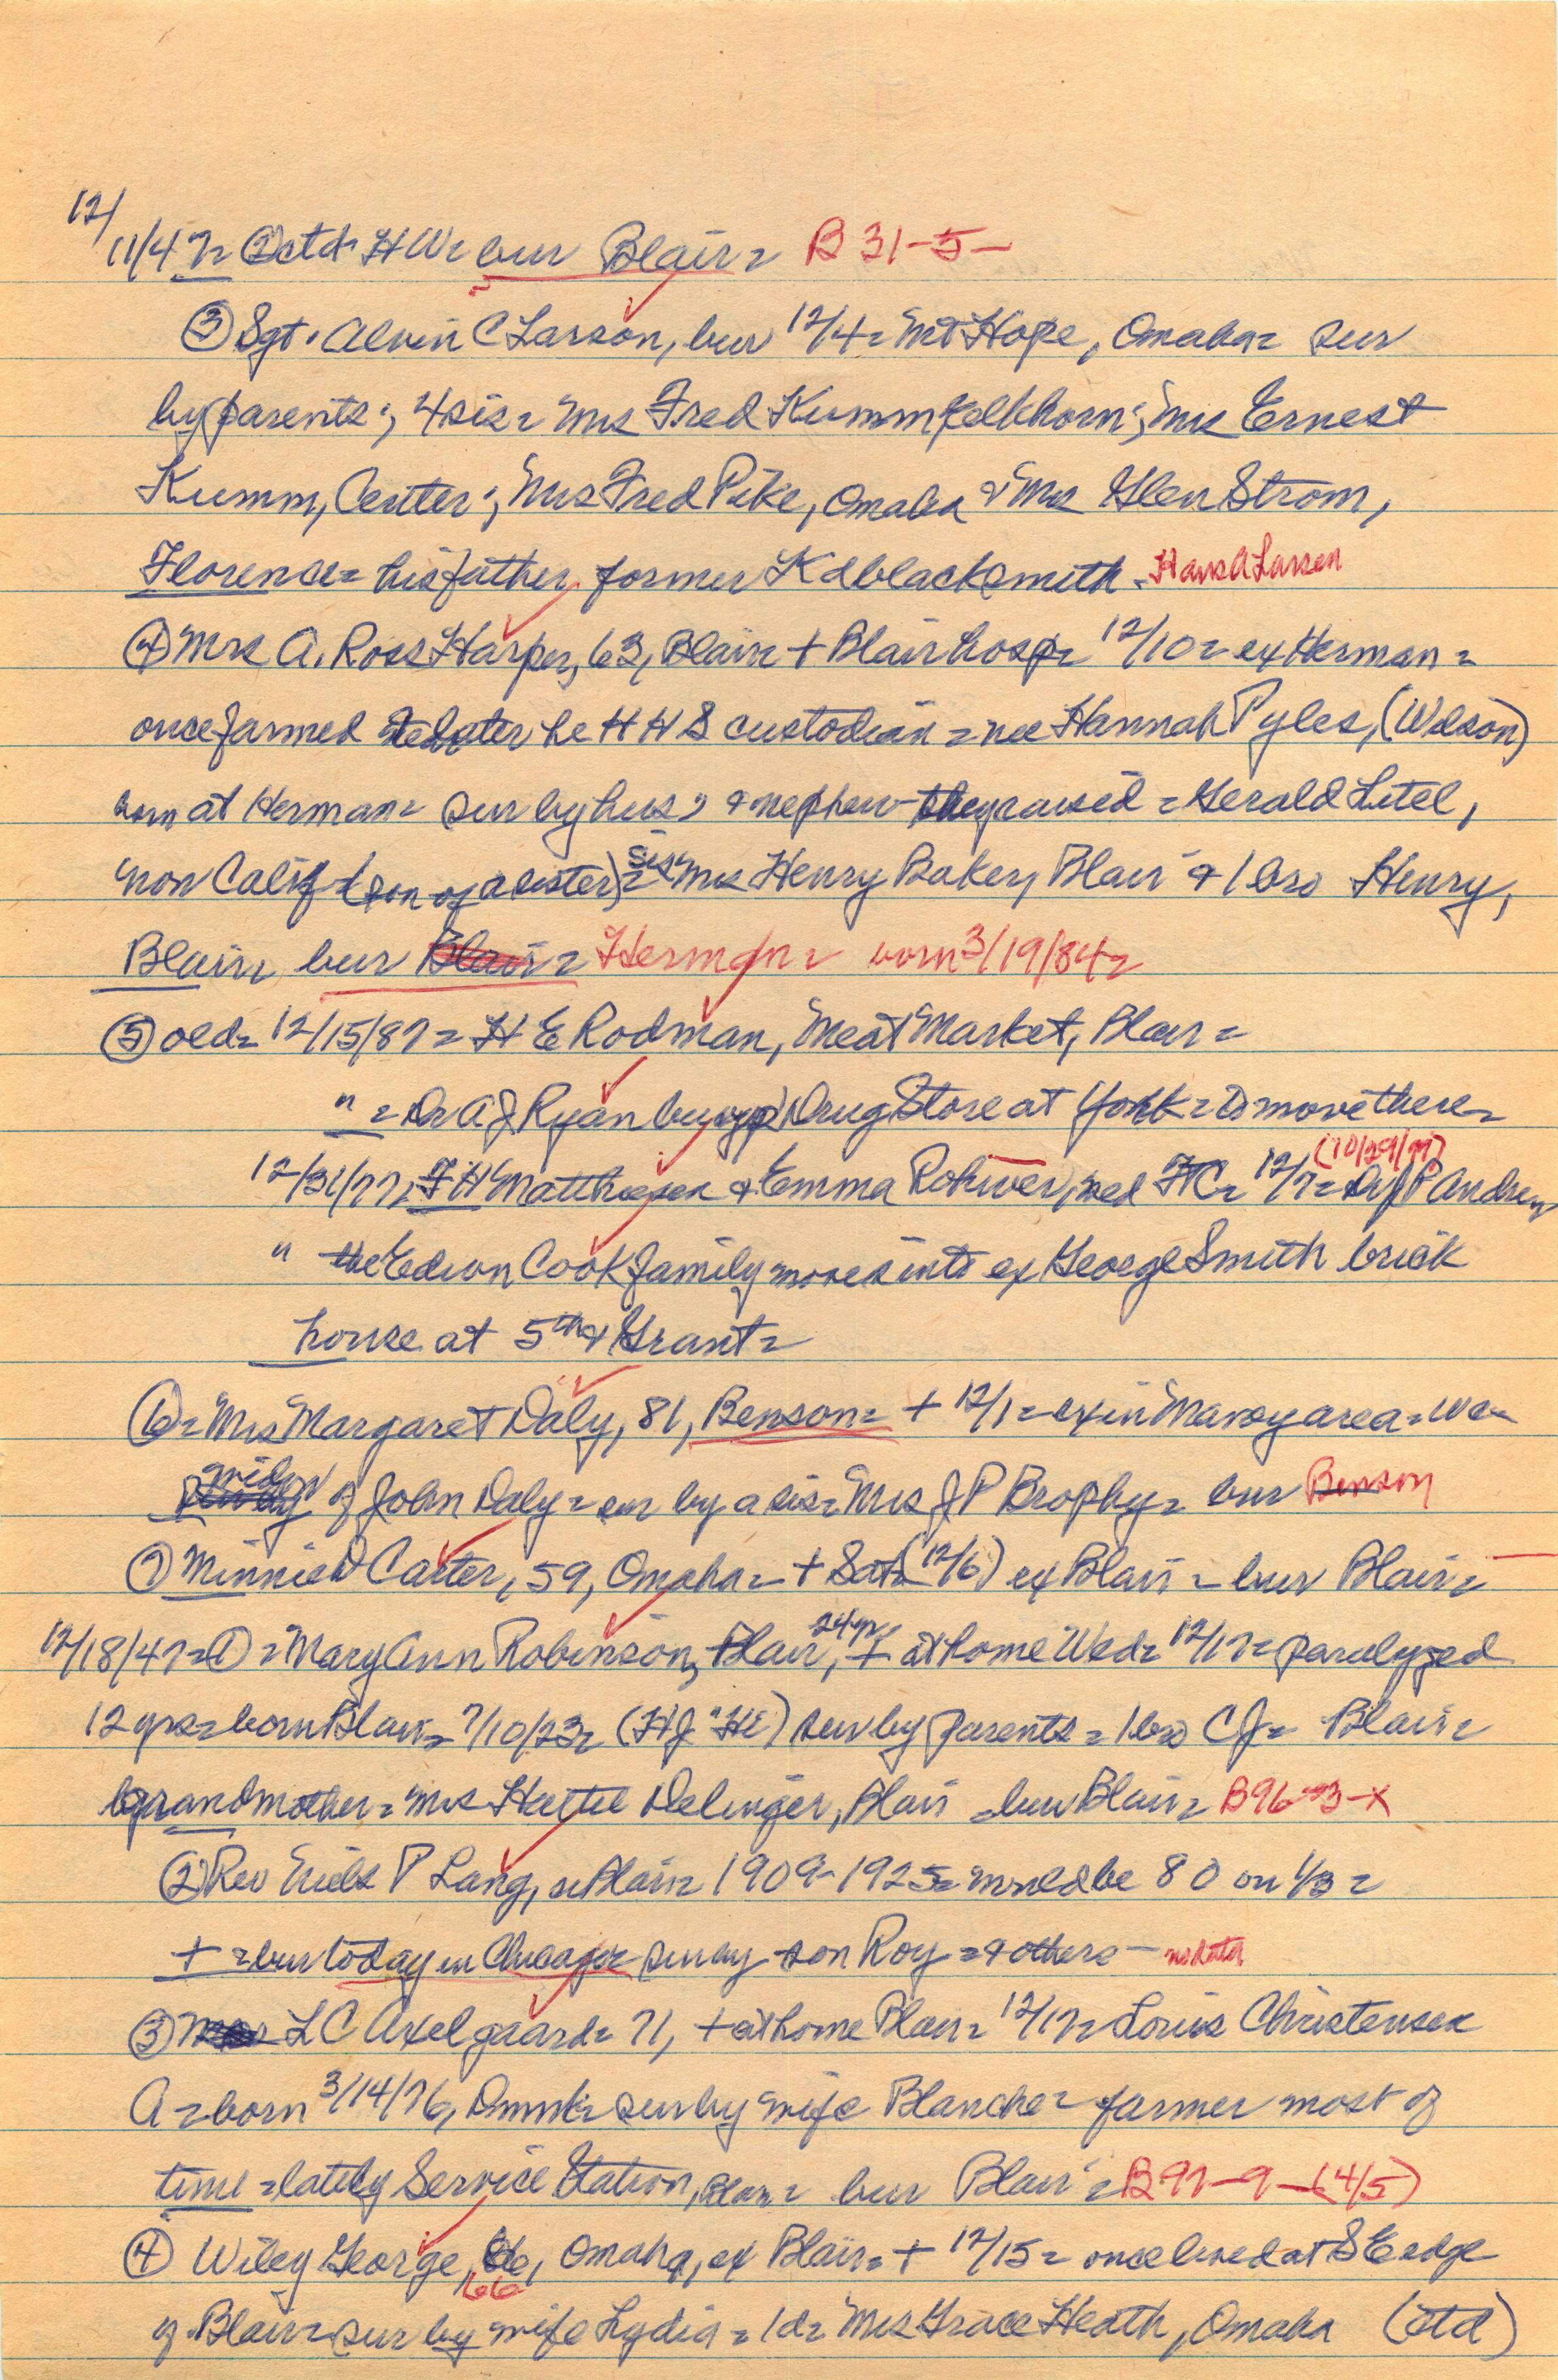 12/
11/47= ② ctd= HW= bur Blair= B 31-5-
③ Sgt. Alvin C Larson, bur 12/4= Mt Hope, Omaha= sur
by parents; 4 sis= Mrs Fred Kumm Elkhorn; Mrs Ernest
Kumm, Center; Mrs Fred Pike, Omaha & Mrs Glen Strom,
Florence= his father former Kd blacksmith - Hans A Larsen
④ Mrs A. Ross Harper, 63, Blair + Blair hosp= 12/10= ex Herman=
once farmed later he HHS custodian= nee Hannah Pyles, (Wilson)
born at Herman= sur by hus, & nephew they raised= Gerald Litel,
now Calif (son of a sister)= sis Mrs Henry Baker, Blair & 1 bro Henry,
Blair= bur Blair= Herman= born 3/19/84=
⑤ old= 12/15/87= H E Rodman, Meat Market, Blair=
" = Dr A J Ryan buys Drug Store at York= to move there=
12/21/77, F H Matthiesen & Emma Rohwer, med FC= 12/7= (10/29/77) J P Andrew
" the Edson Cook family moves into ex George Smith brick
house at 5th & Grant=
⑥= Mrs Margaret Daly, 81, Benson= + 12/1= ex in area=
widow of John Daly= sur by a sis= Mrs J P Brophy= bur Benson
⑦ Minnie D Carter, 59, Omaha= + Sat= (12/6) ex Blair= bur Blair=
12/18/47= ①= Mary Ann Robinson, Blair, 24 yr, + at home Wed= 12/17= paralyzed
12 yrs= born Blair= 7/10/23= (HJ "Hi") sur by parents= 1 bro CJ= Blair=
grandmother= Mrs Hattie Delinger, Blair= bur Blair= B96-3-X
② Rev Niels P Lang, at Blair= 1909-1925= would be 80 on 1/3=
+ = bur today in Chicago= sur by son Roy= & others - no data
③ L C Axelgaard= 71, + at home Blair= 12/17= Louis Christensen
A= born 3/14/76, Dnmk= sur by wife Blanche= farmer most of
time= lately Service Station, Blair= bur Blair= B97-9-(4/5)
④ Wiley George, 66, Omaha, ex Blair= + 12/15= once lived at SE edge
of Blair= sur by wife Lydia= 1 d= Mrs Grace Heath, Omaha (ctd)